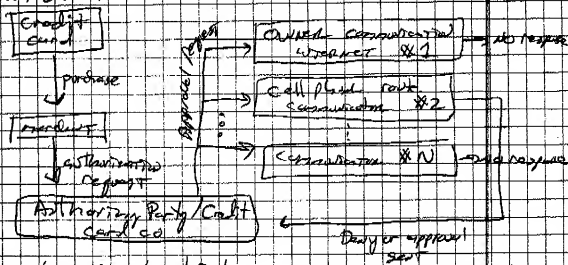 credit
card
purchase
merchant
authorization
request
Authorizing Party/Credit
card co
Approval Request
OWNER communication
INTERNET #1
No response
cell phone route
communication #2
communication #N
No response
Deny or approval
sent